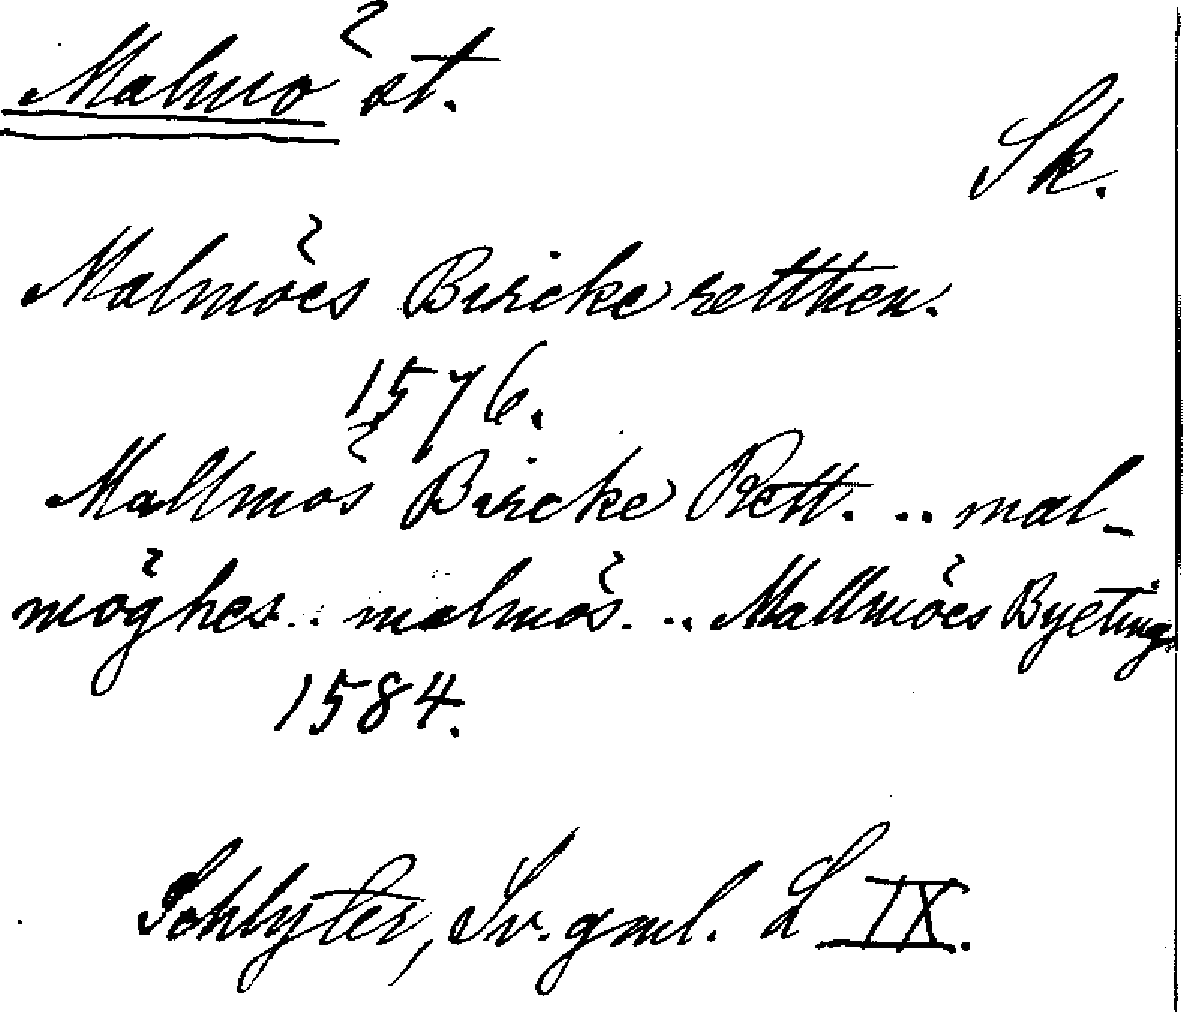 Malmö st.
Sk.
Malmöes Bircke retthen.
1576.
Mallmös Bircke Rett. .. mal-
möghes .. malmös. .. Mallmöes Byeting
1584.
Schlyter, Sv. gml. L IX.